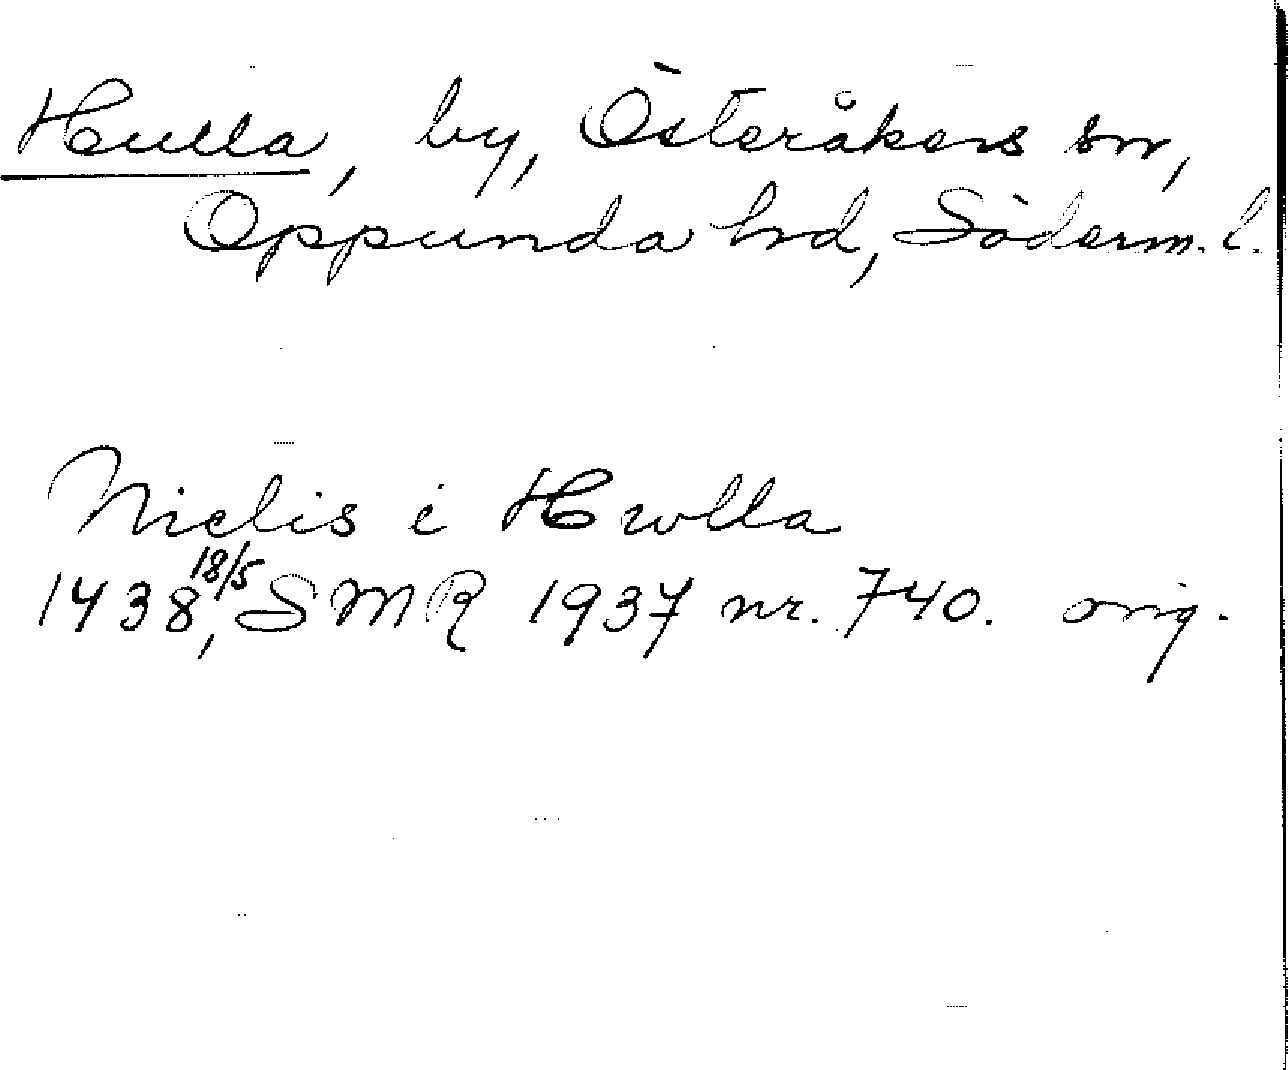 Hulla, by, Österåkers sn,
Oppunda hd, Söderm. l.
Nielis i Hwlla
1438 18/5, SMR 1937 nr. 740. orig.